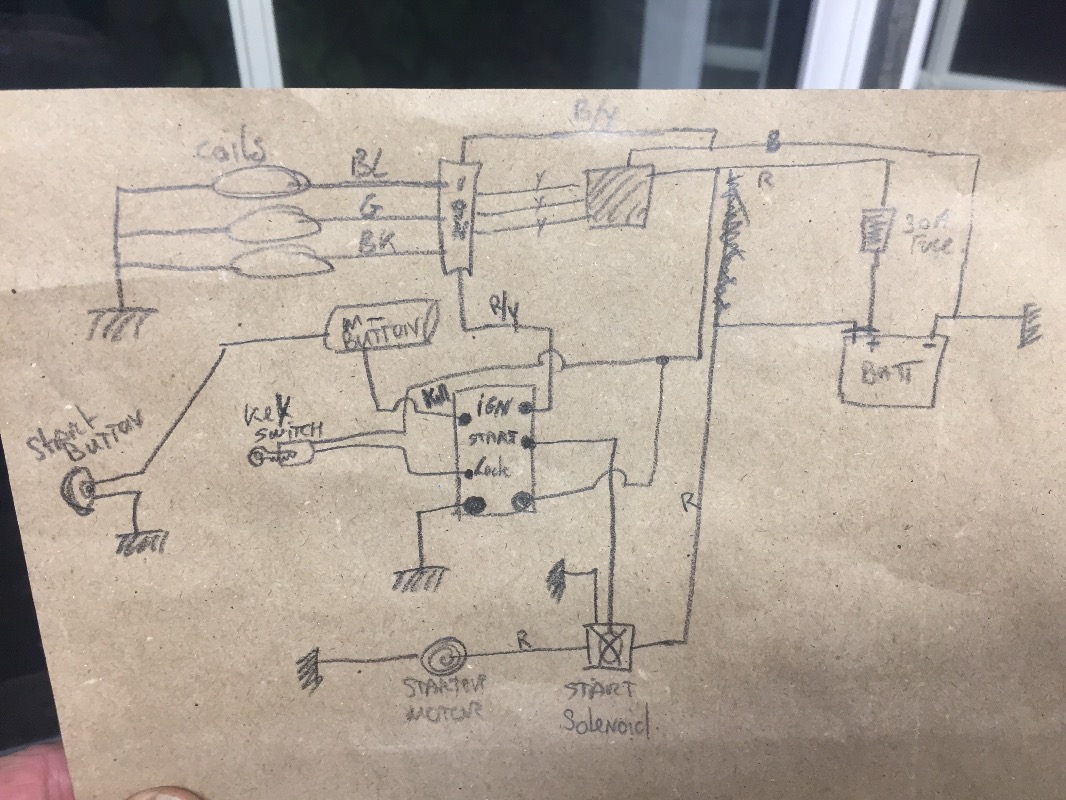 B/Y
coils
BL
B
R
Y
G
Y
BK
Y
30A
Fuse
R/Y
M-
BUTTON
BATT
Kill
IGN
Key
SWITCH
START
BUTTON
START
Lock
R
R
STARTER
MOTOR
START
Solenoid